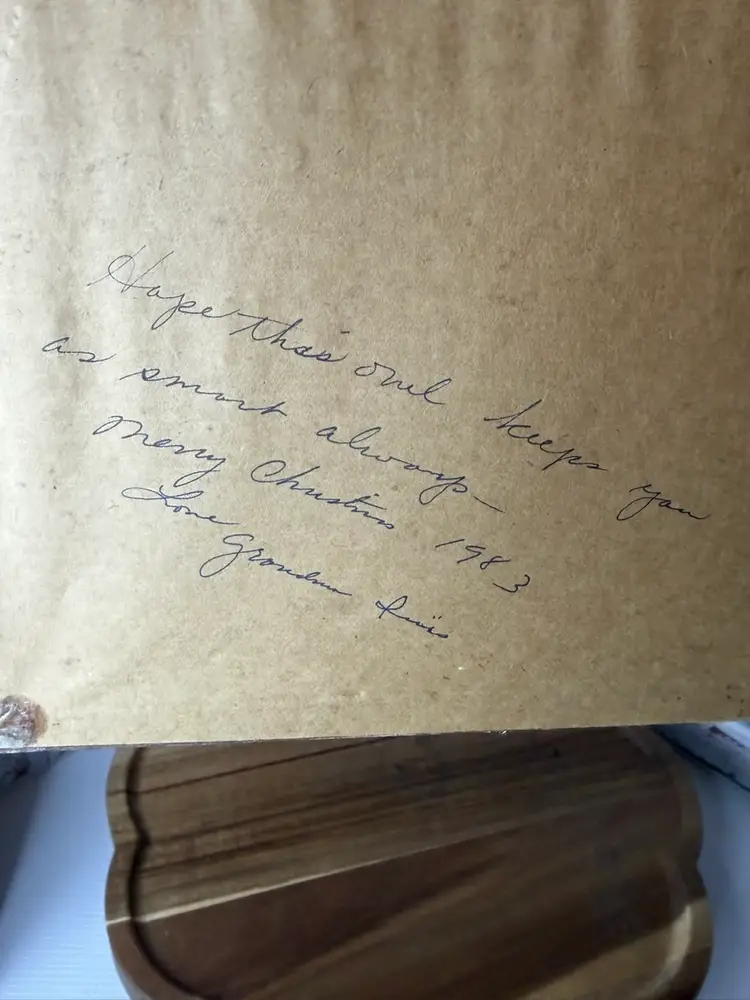 Hope this owl keeps you
as smart always—
Merry Christmas 1983
Love
Grandma